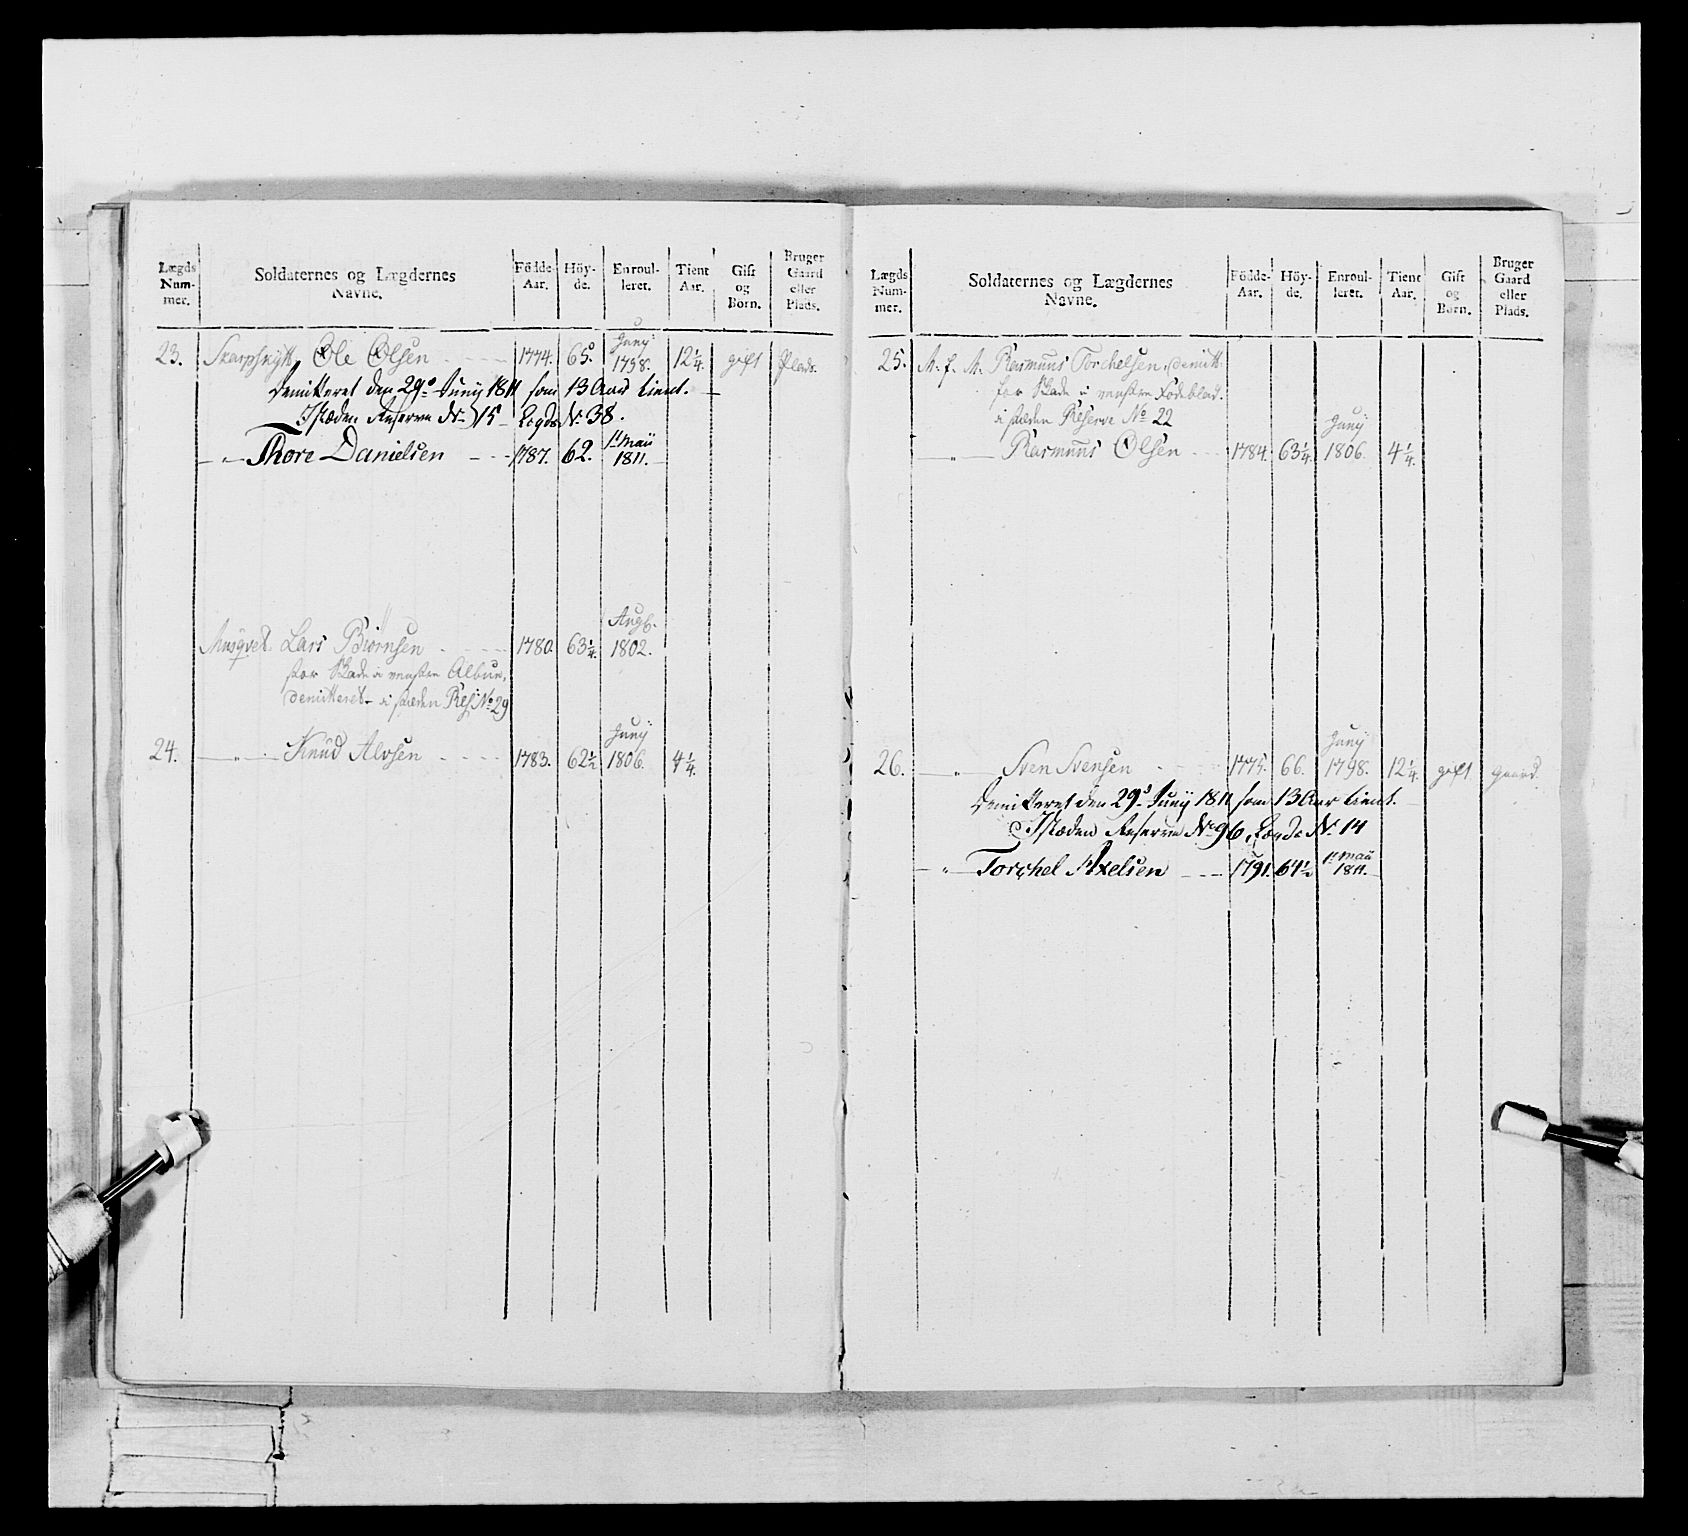 Lægds Num- mer. Soldaternes og Lægdernes Navne. Födde- Aar. Höy- de. Enroul- leret. Tient Aar. Gift og Børn. Bruger Gaard eller Plads.
Juny
23. Skarpskytt Ole Olsen 1774. 65. 1798. 12 1/4. gift Plads.
Demitteret den 29de Juny 1811 som 13 Aar tient.
I Stæden Reserve No 15 Legds No 38.
1te Maii
— " — Thore Danielsen 1787. 62. 1811.
Augs.
Musqvet. Lars Biørnsen 1780. 63 1/4. 1802.
for Skade i venstre Albue,
demitteret - i stæden Res. No 29
Juny
24. — " — Knud Alvsen 1783. 62 1/2 1806. 4 1/4.
Lægds Num- mer. Soldaternes og Lægdernes Navne. Födde- Aar. Höy- de. Enroul- leret. Tient Aar. Gift og Børn. Bruger Gaard eller Plads.
25. Rasmuus Torchelsen, demitt.
for Skade i venstre Fodeblad.
i stæden Reserve No 22
Juny
— " — Rasmuus Olsen 1784. 63 1/4. 1806. 4 1/4.
Juny
26. — " — Sven Svensen 1775. 66. 1798. 12 1/4. gift gaard.
Demitteret den 29de Juny 1811 som 13 Aar tient.
I Stæden Reserve No 96, Legds No 14
1te Maii
— " — Torchel Axelsen 1791. 64 1/2 1811.